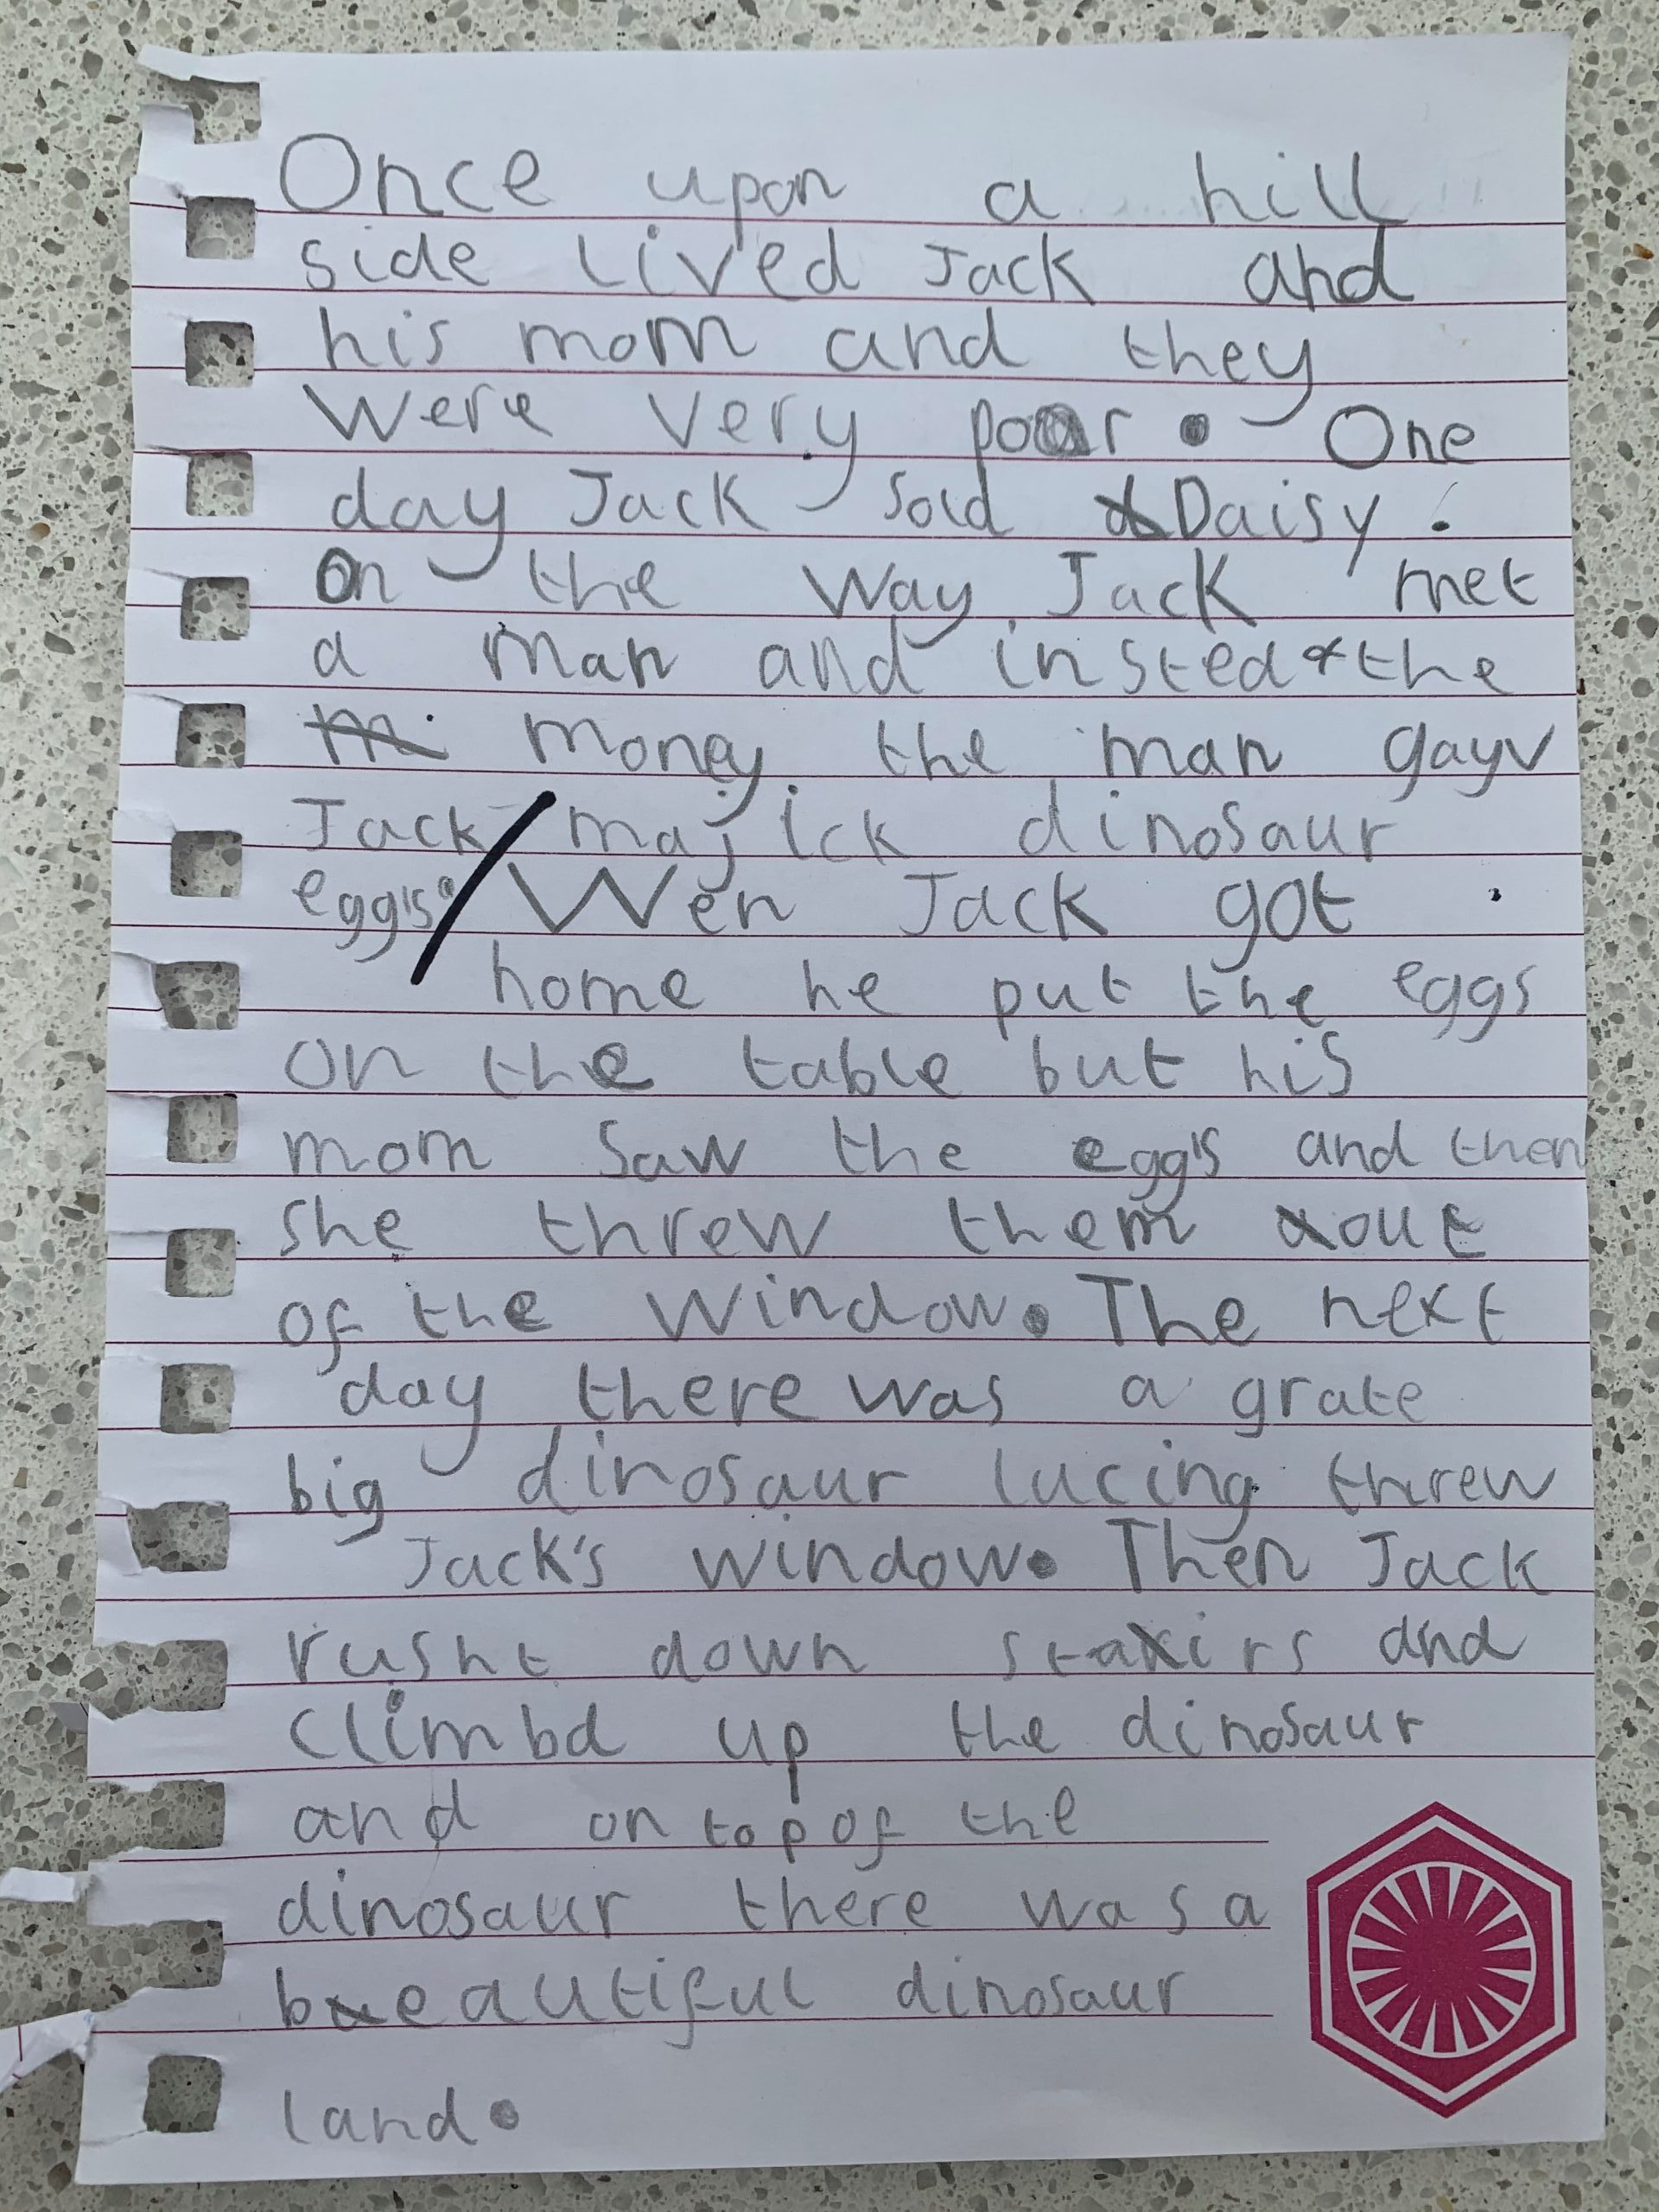 Once upon a hill
side lived Jack and
his mom and they
were very poor. One
day Jack sold Daisy.
On the way Jack met
a man and insted the
money the man gayv
Jack majick dinosaur
eggs. Wen Jack got
home he put the eggs
on the table but his
mom saw the eggs and then
she threw them out
of the window. The next
day there was a grate
big dinosaur lucing threw
Jack's window. Then Jack
rusht down stairs and
climbd up the dinosaur
and on top of the
dinosaur there was a
beautiful dinosaur
land.